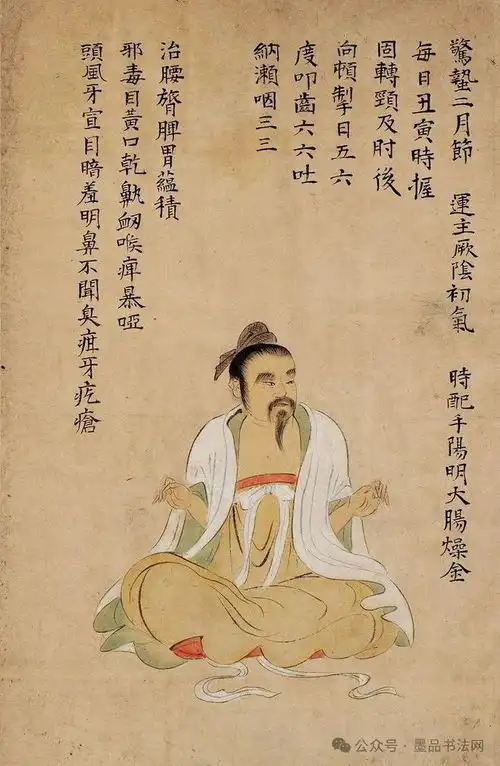 驚蟄二月節　運主厥陰初氣　時配手陽明大腸燥金
每日丑寅時握
固轉頸及肘後
向頓掣日五六
度叩齒六六吐
納瀬咽三三
治腰膂脾胃蘊積
邪毒目黃口乾鼽衂喉痺暴啞
頭風牙宣目暗羞明鼻不聞臭疽牙疙瘡
公众号·墨品书法网